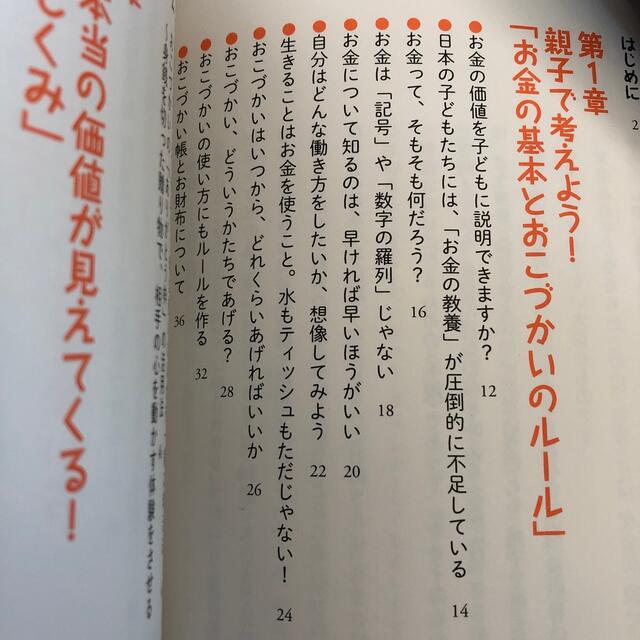 はじめに 2
第1章
親子で考えよう!
「お金の基本とおこづかいのルール」
● お金の価値を子どもに説明できますか? 12
● 日本の子どもたちには、「お金の教養」が圧倒的に不足している 14
● お金って、そもそも何だろう? 16
● お金は「記号」や「数字の羅列」じゃない 18
● お金について知るのは、早ければ早いほうがいい 20
● 自分はどんな働き方をしたいか、想像してみよう 22
● 生きることはお金を使うこと。水もティッシュもただじゃない! 24
● おこづかいはいつから、どれくらいあげればいいか 26
● おこづかい、どういうかたちであげる? 28
● おこづかいの使い方にもルールを作る 32
● おこづかい帳とお財布について 36
相手の心を動かす体験をさせる
本当の価値が見えてくる!
くみ」